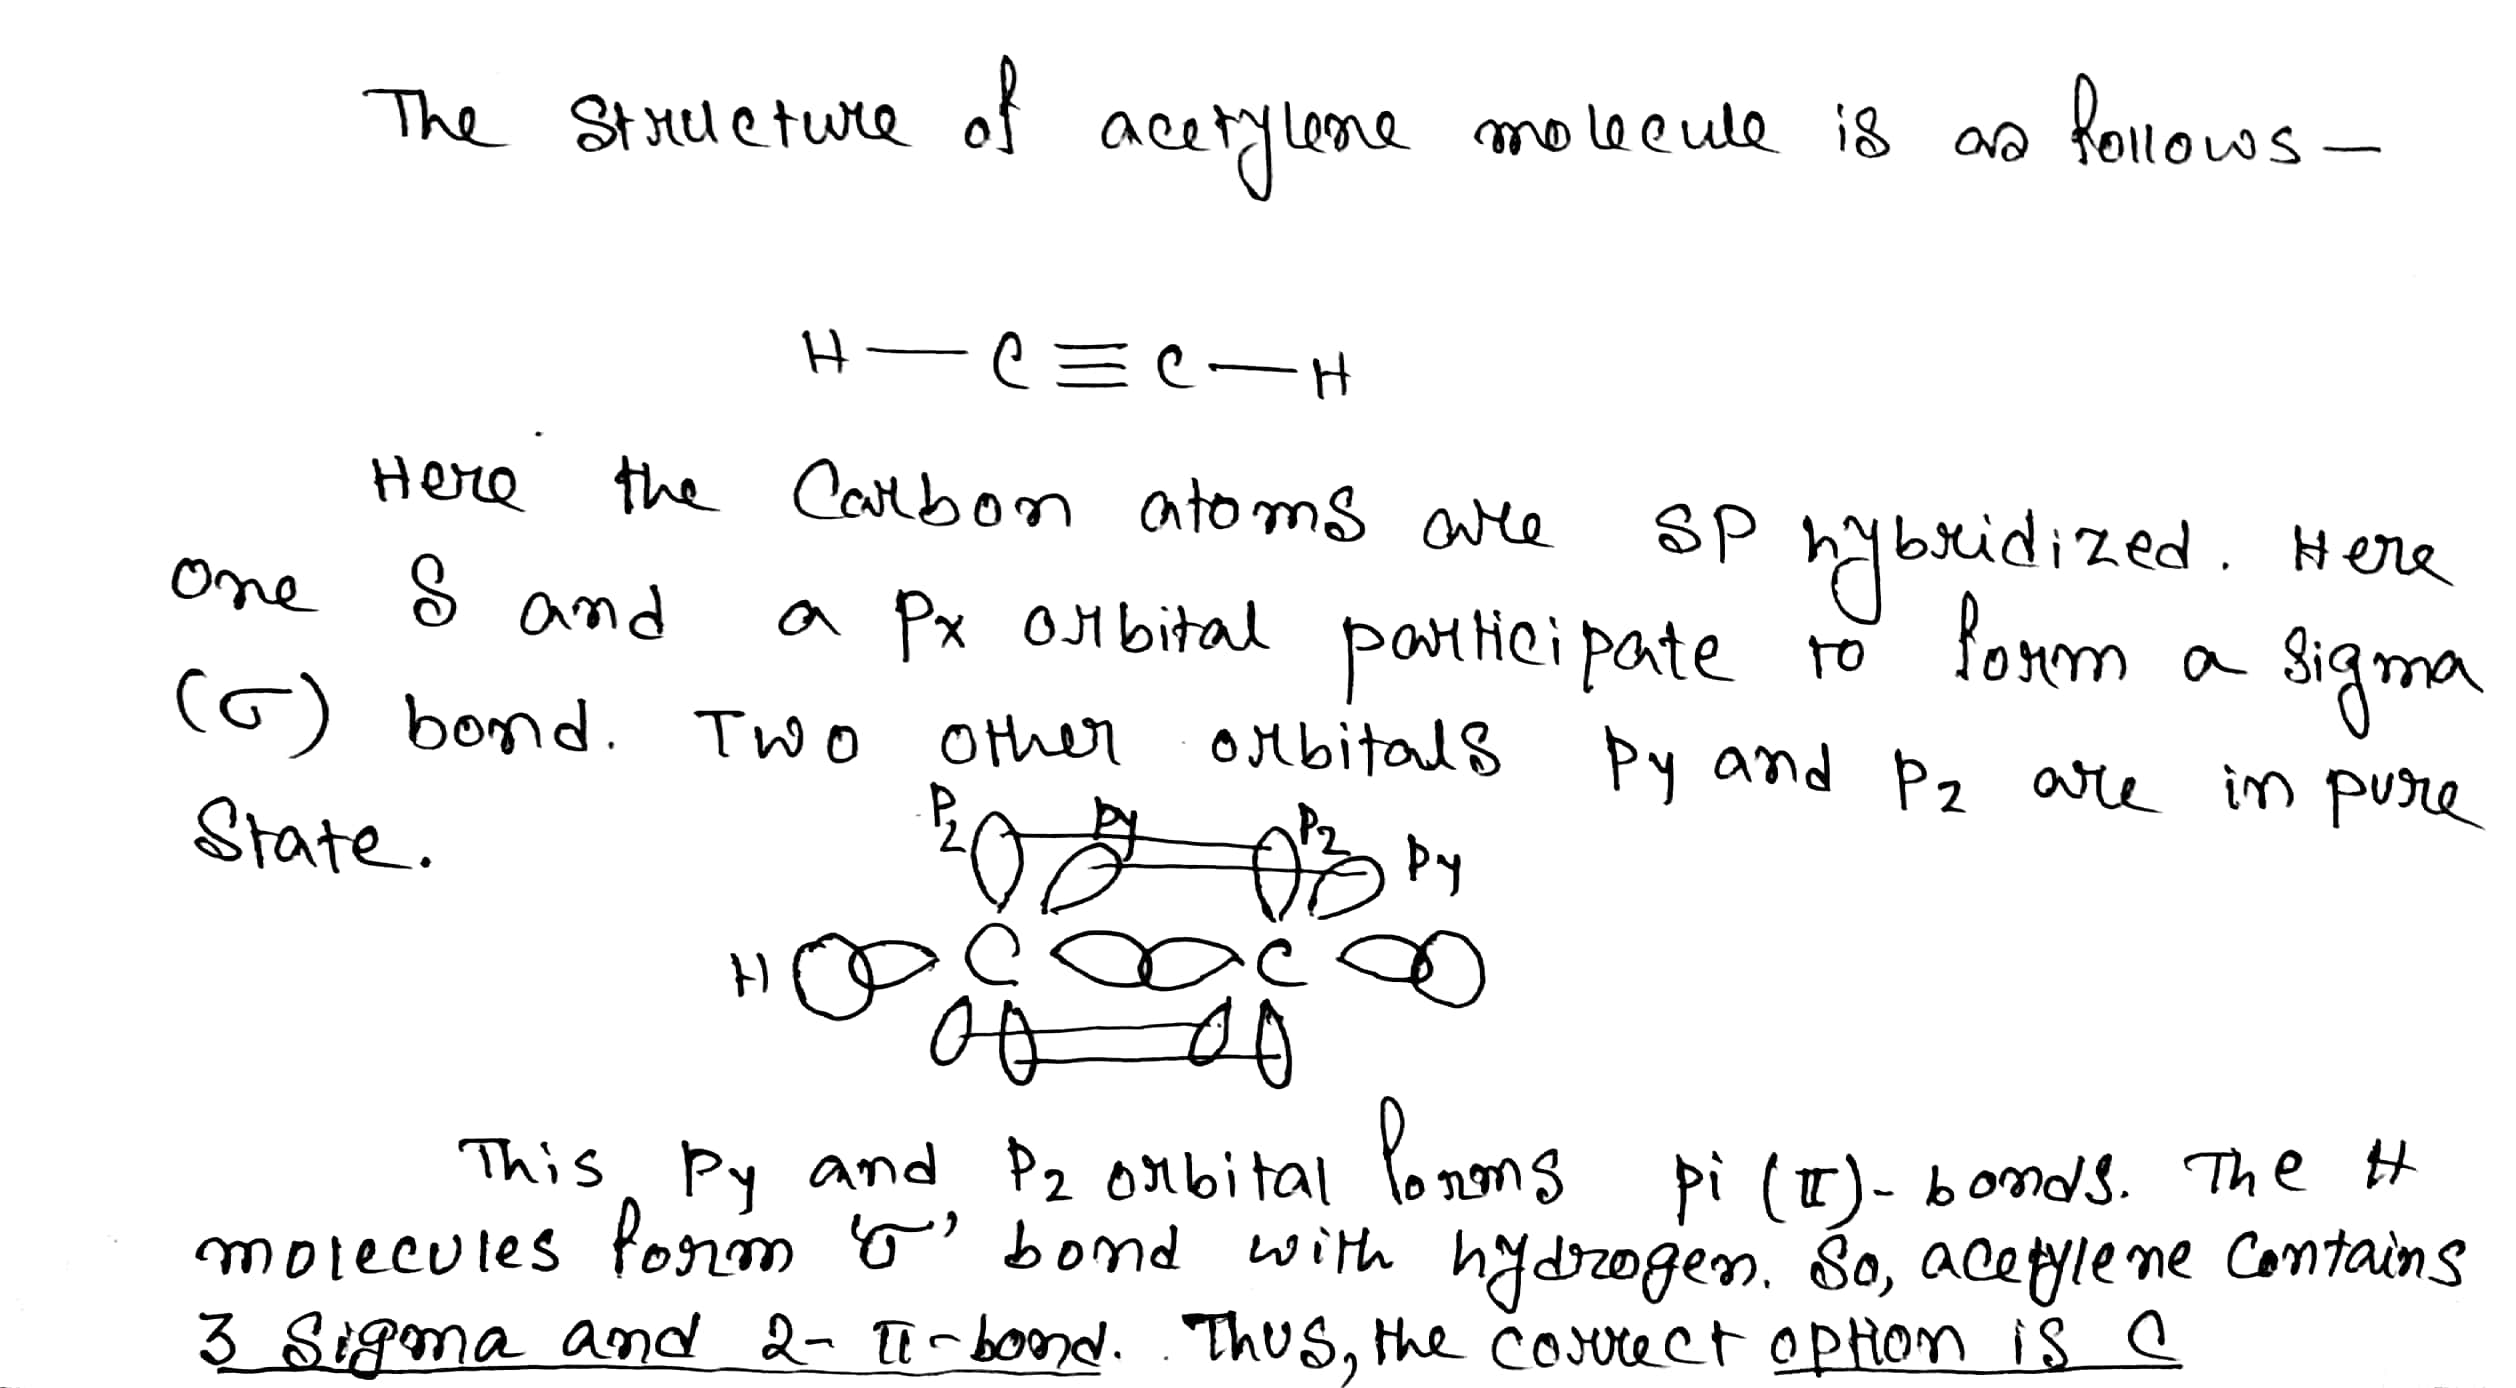 The structure of acetylene molecule is as follows—
H — C ≡ C — H
Here the Carbon atoms are SP hybridized. Here
one S and a Px orbital participate to form a sigma
(σ) bond. Two other orbitals Py and Pz are in pure
State.
Pz Py Pz Py
H C C
This Py and Pz orbital forms pi (π)- bonds. The H
molecules form 'σ' bond with hydrogen. So, acetylene Contains
3 Sigma and 2- π-bond. Thus, the correct option is C